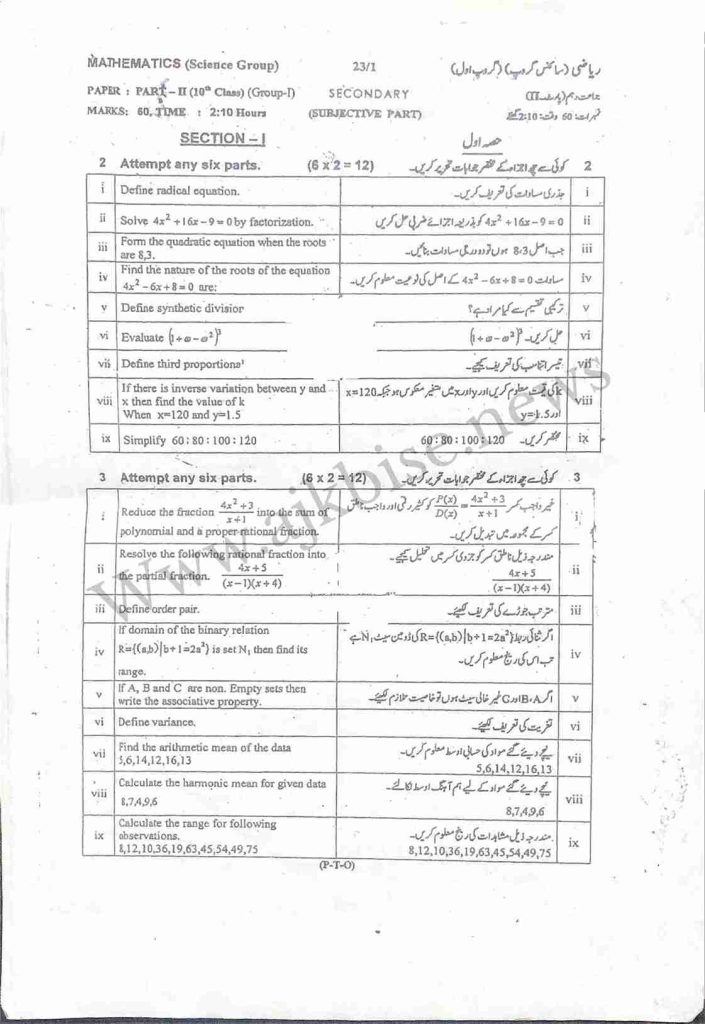 MATHEMATICS (Science Group) 23/1 ریاضی (سائنس گروپ) (گروپ اول)
PAPER : PART – II (10th Class) (Group-I) SECONDARY
MARKS: 60, TIME : 2:10 Hours (SUBJECTIVE PART) نمبرات: 60 وقت: 2:10 گھنٹے
SECTION – I حصہ اول
2 Attempt any six parts. (6 x 2 = 12) کوئی سے چھ اجزاء کے مختصر جوابات تحریر کریں۔ 2
i Define radical equation. جذری مساوات کی تعریف کریں۔ i
ii Solve 4x² +16x – 9 = 0 by factorization. 4x² +16x – 9 = 0 کو بذریعہ اجزائے ضربی حل کریں ii
iii Form the quadratic equation when the roots
are 8,3. جب اصل 8،3 ہوں تو دو درجی مساوات بنائیں۔ iii
iv Find the nature of the roots of the equation
4x² – 6x + 8 = 0 are: مساوات 4x² – 6x + 8 = 0 کے اصل کی نوعیت معلوم کریں۔ iv
v Define synthetic division ترکیبی تقسیم سے کیا مراد ہے؟ v
vi Evaluate (1 + ω – ω²)³ (1 + ω – ω²)³ حل کریں۔ vi
vii Define third proportional تیسرا تناسب کی تعریف کیجیے۔ vii
viii If there is inverse variation between y and
x then find the value of k
When x=120 and y=1.5 k کی قیمت معلوم کریں اور y اور x میں تغیر معکوس ہو جبکہ x=120
اور y=1.5 viii
ix Simplify 60 : 80 : 100 : 120 60 : 80 : 100 : 120 مختصر کریں۔ ix
3 Attempt any six parts. (6 x 2 = 12) کوئی سے چھ اجزاء کے مختصر جوابات تحریر کریں۔ 3
i Reduce the fraction (4x² + 3)/(x + 1) into the sum of
polynomial and a proper rational fraction. غیر واجب کسر P(x)/D(x) = (4x² + 3)/(x + 1) کو کثیر رقمی اور واجب ناطق
کسر کے مجموعہ میں تبدیل کریں۔ i
ii Resolve the following rational fraction into
the partial fraction. (4x + 5)/((x – 1)(x + 4)) مندرجہ ذیل ناطق کسر کو جزوی کسر میں تحلیل کیجیے۔
(4x + 5)/((x – 1)(x + 4)) ii
iii Define order pair. مترتب جوڑے کی تعریف لکھیئے۔ iii
iv If domain of the binary relation
R={(a,b)|b+1=2a²} is set N, then find its
range. اگر ثنائی ربط R={(a,b)|b+1=2a²} کی ڈومین سیٹ N ہے
تب اس کی رینج معلوم کریں۔ iv
v If A, B and C are non. Empty sets then
write the associative property. اگر A، B اور C غیر خالی سیٹ ہوں تو خاصیت تلازم لکھیئے۔ v
vi Define variance. تغیریت کی تعریف لکھیئے۔ vi
vii Find the arithmetic mean of the data
5,6,14,12,16,13 نیچے دیئے گئے مواد کی حسابی اوسط معلوم کریں۔
5,6,14,12,16,13 vii
viii Calculate the harmonic mean for given data
8,7,4,9,6 نیچے دیئے گئے مواد کے لیے ہم آہنگ اوسط نکالئے۔
8,7,4,9,6 viii
ix Calculate the range for following
observations.
8,12,10,36,19,63,45,54,49,75 مندرجہ ذیل مشاہدات کی رینج معلوم کریں۔
8,12,10,36,19,63,45,54,49,75 ix
(P-T-O)
www.ajkbise.news